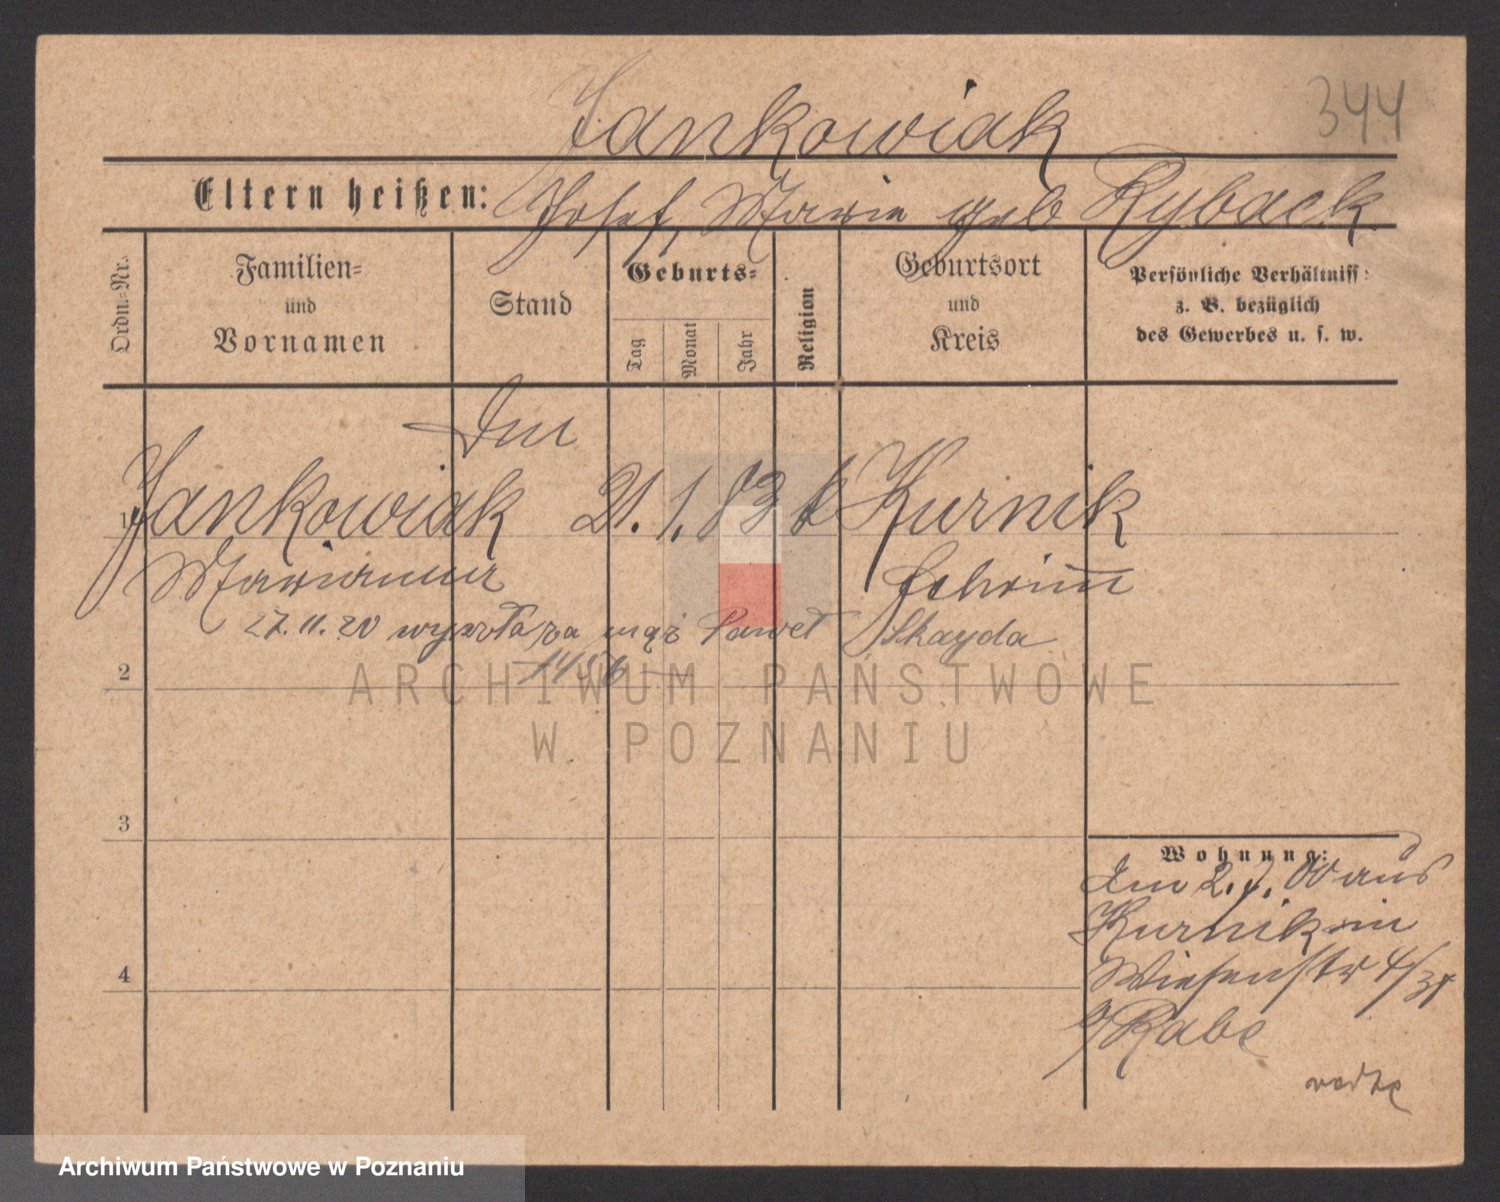 344
Jankowiak
Eltern heißen: Josef, Marie geb Ryback
Ordn.-Nr.
Familien-
und
Vornamen
Stand
Geburts-
Tag
Monat
Jahr
Religion
Geburtsort
und
Kreis
Persönliche Verhältniss-
z. B. bezüglich
des Gewerbes u. s. w.
1 Jankowiak 21. 1. 83 k Kurnik
Marianna Schrimm
27.11.20 wyszła za mąż Paweł Skayda
2
3
4
Wohnung:
aus
Kurnik in
Wiesenstr 4/
Rabe
ARCHIWUM PAŃSTWOWE
W POZNANIU
Archiwum Państwowe w Poznaniu